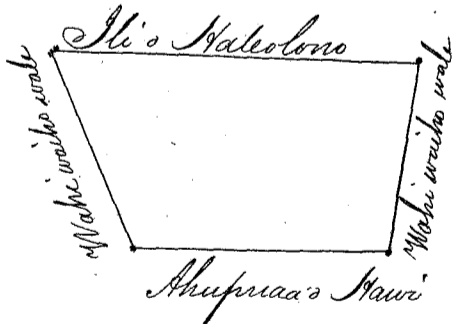 Ili o Haleolono
Wahi waiho wale
Wahi waiho wale
Ahupuaa o Hawi